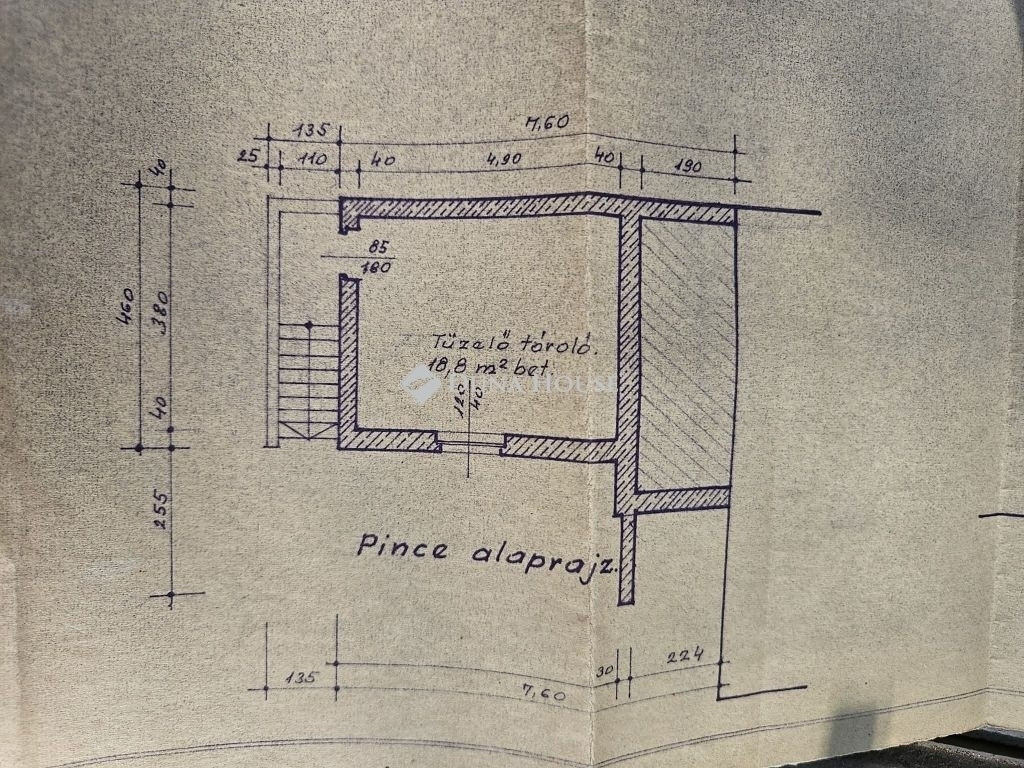 135 7,60
25 110 40 4,90 40 190
40
85
180
460 380
Tüzelő tároló.
18,8 m² bet.
DUNA HOUSE
120
40
40
255
Pince alaprajz.
30 224
135 7,60